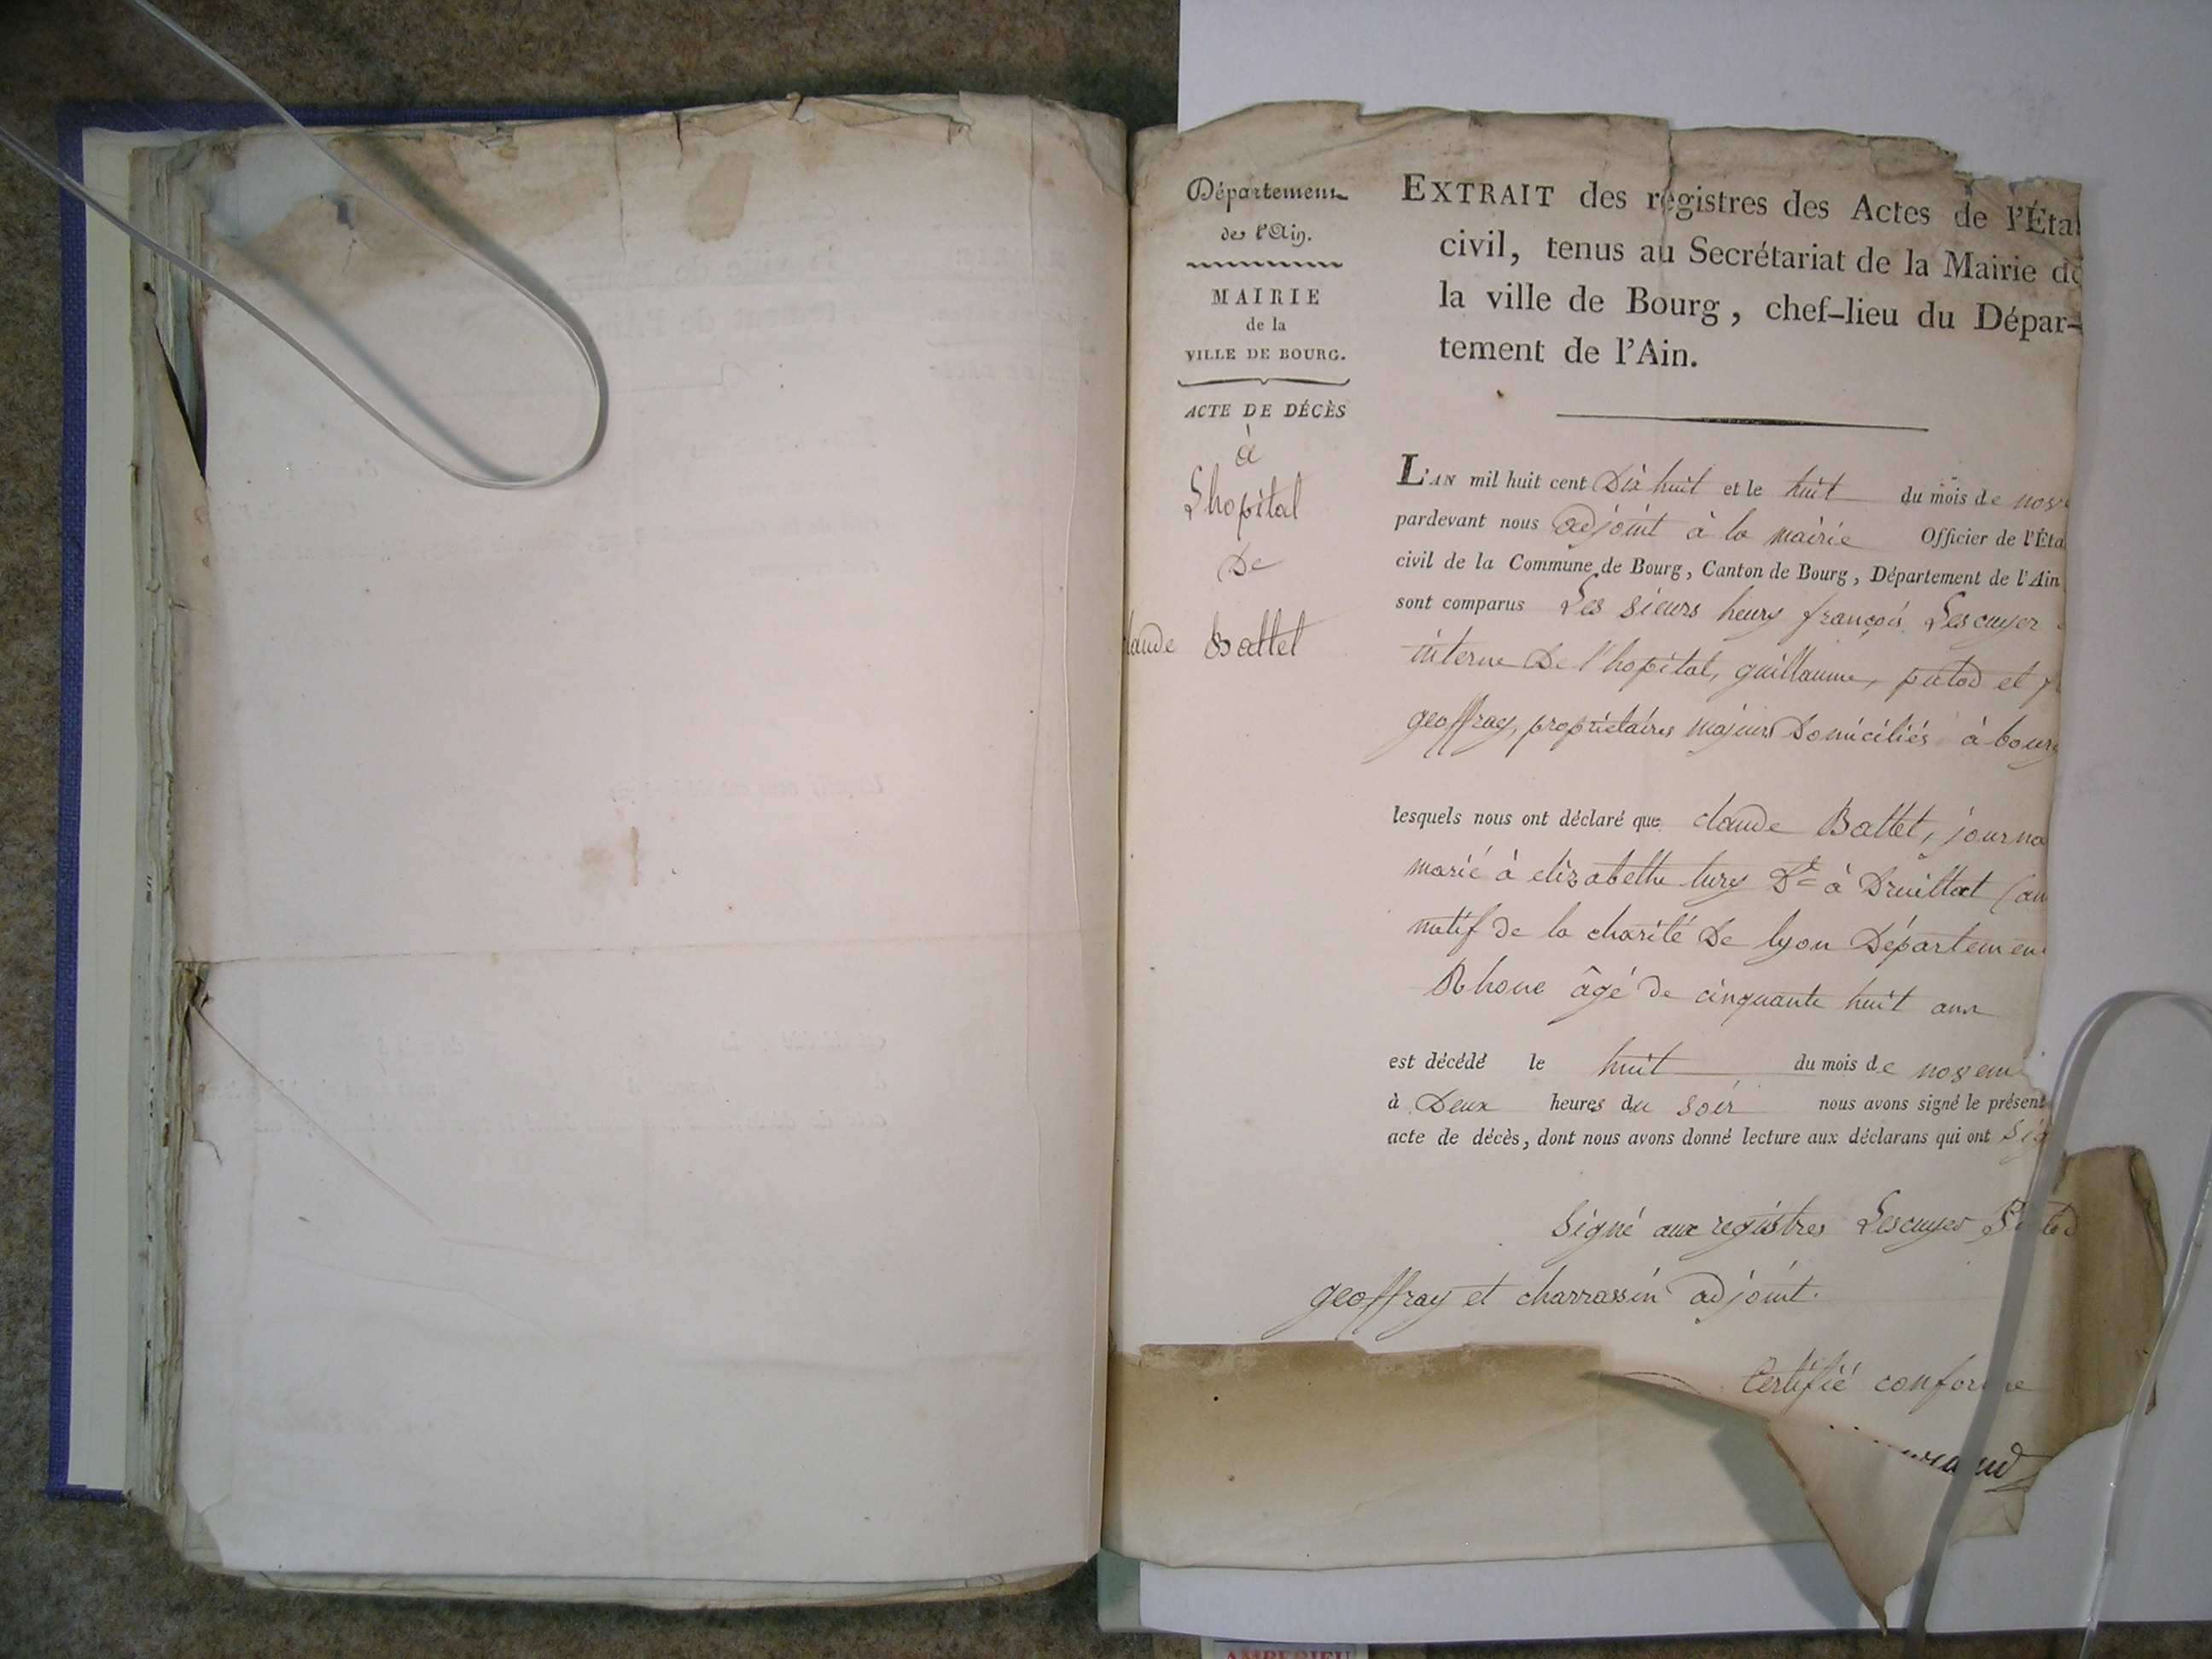 Département
de l'Ain.
MAIRIE
de la
VILLE DE BOURG.
ACTE DE DÉCÈS
à
Lhopital
De
laude Battet
EXTRAIT des registres des Actes de l'Éta
civil, tenus au Secrétariat de la Mairie de
la ville de Bourg, chef-lieu du Dépar-
tement de l'Ain.
L'AN mil huit cent Dix huit et le huit du mois de nov
pardevant nous adjoint à la mairie Officier de l'Éta
civil de la Commune de Bourg, Canton de Bourg, Département de l'Ain
sont comparus Les sieurs henry françois Lescuyer
interne De l'hopital, guillaume, putod et
geoffray, propriétaires majeurs Domiciliés à bourg
lesquels nous ont déclaré que claude Battet, journa
marié à elizabethe tury Dt à Druillat (au
natif de la charité De lyon Départemen
Rhone âgé de cinquante huit ans
est décédé le huit du mois de novem
à Deux heures du soir nous avons signé le présent
acte de décès, dont nous avons donné lecture aux déclarans qui ont sig
Signé aux registres Lescuyer Putod
geoffray et charrassin adjoint.
Certifié conforme
AMBERIEU